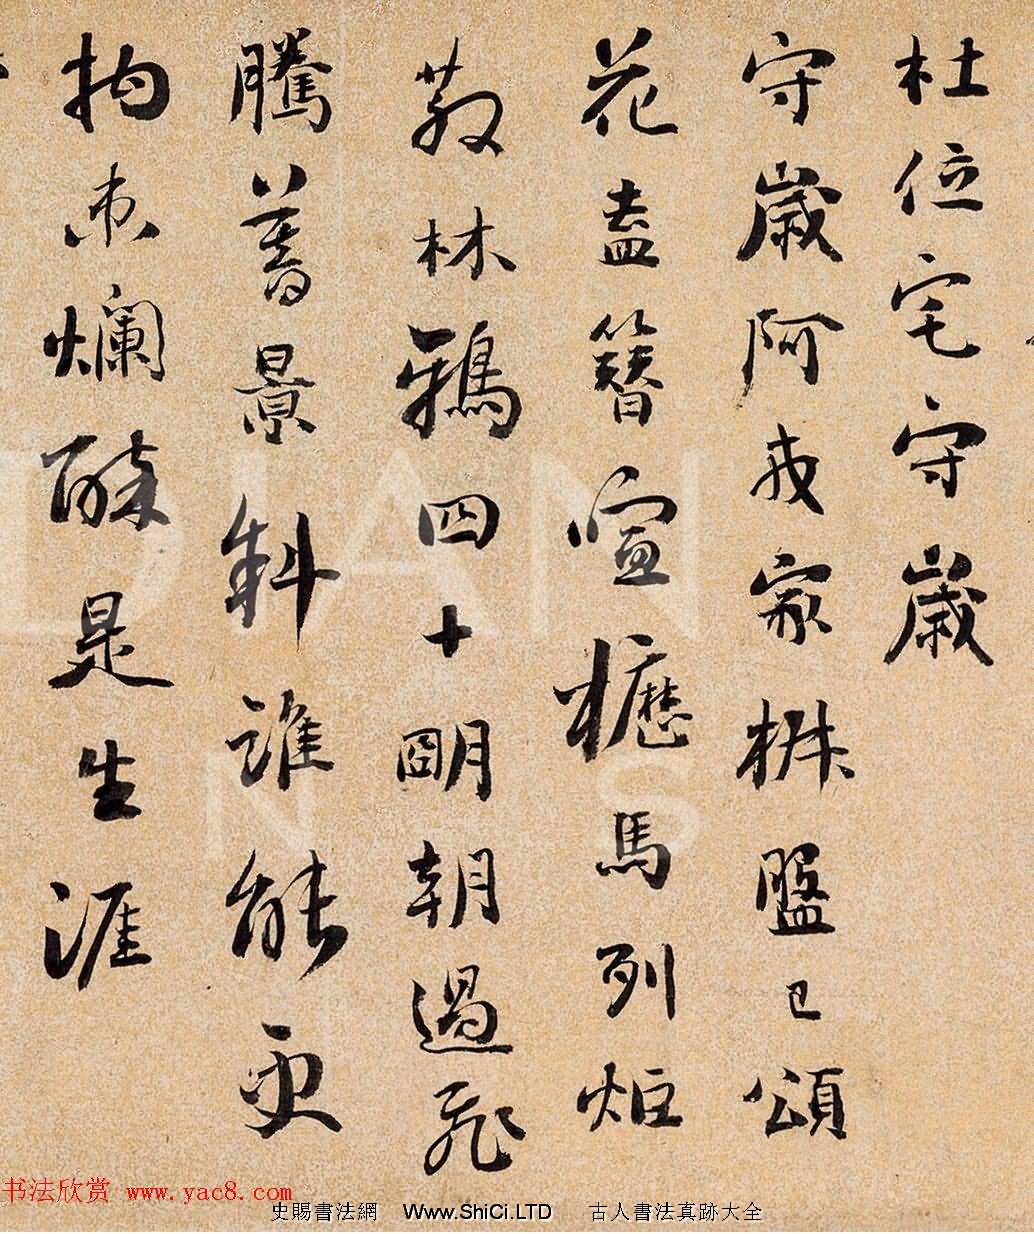 杜位宅守歲
守歲阿戎家椒盤已頌
花盍簪喧櫪馬列炬
散林鴉四十朙朝過飛
騰暮景斜誰能更
拘束爛醉是生涯
书法欣赏 www.yac8.com
史賜書法網 Www.ShiCi.LTD 古人書法真跡大全